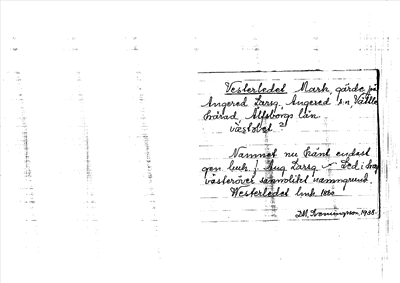 Vesterledet Mark, gärde på
Angered Larsg, Angered sn, Vättle
härad, Älfsborgs län
västəlet
Namnet nu känt endast
gen. buk. f. Aug. Larsg – Led i hag
västeröver sannolikt namngrund.
Westerledet buk. 1880
1938.